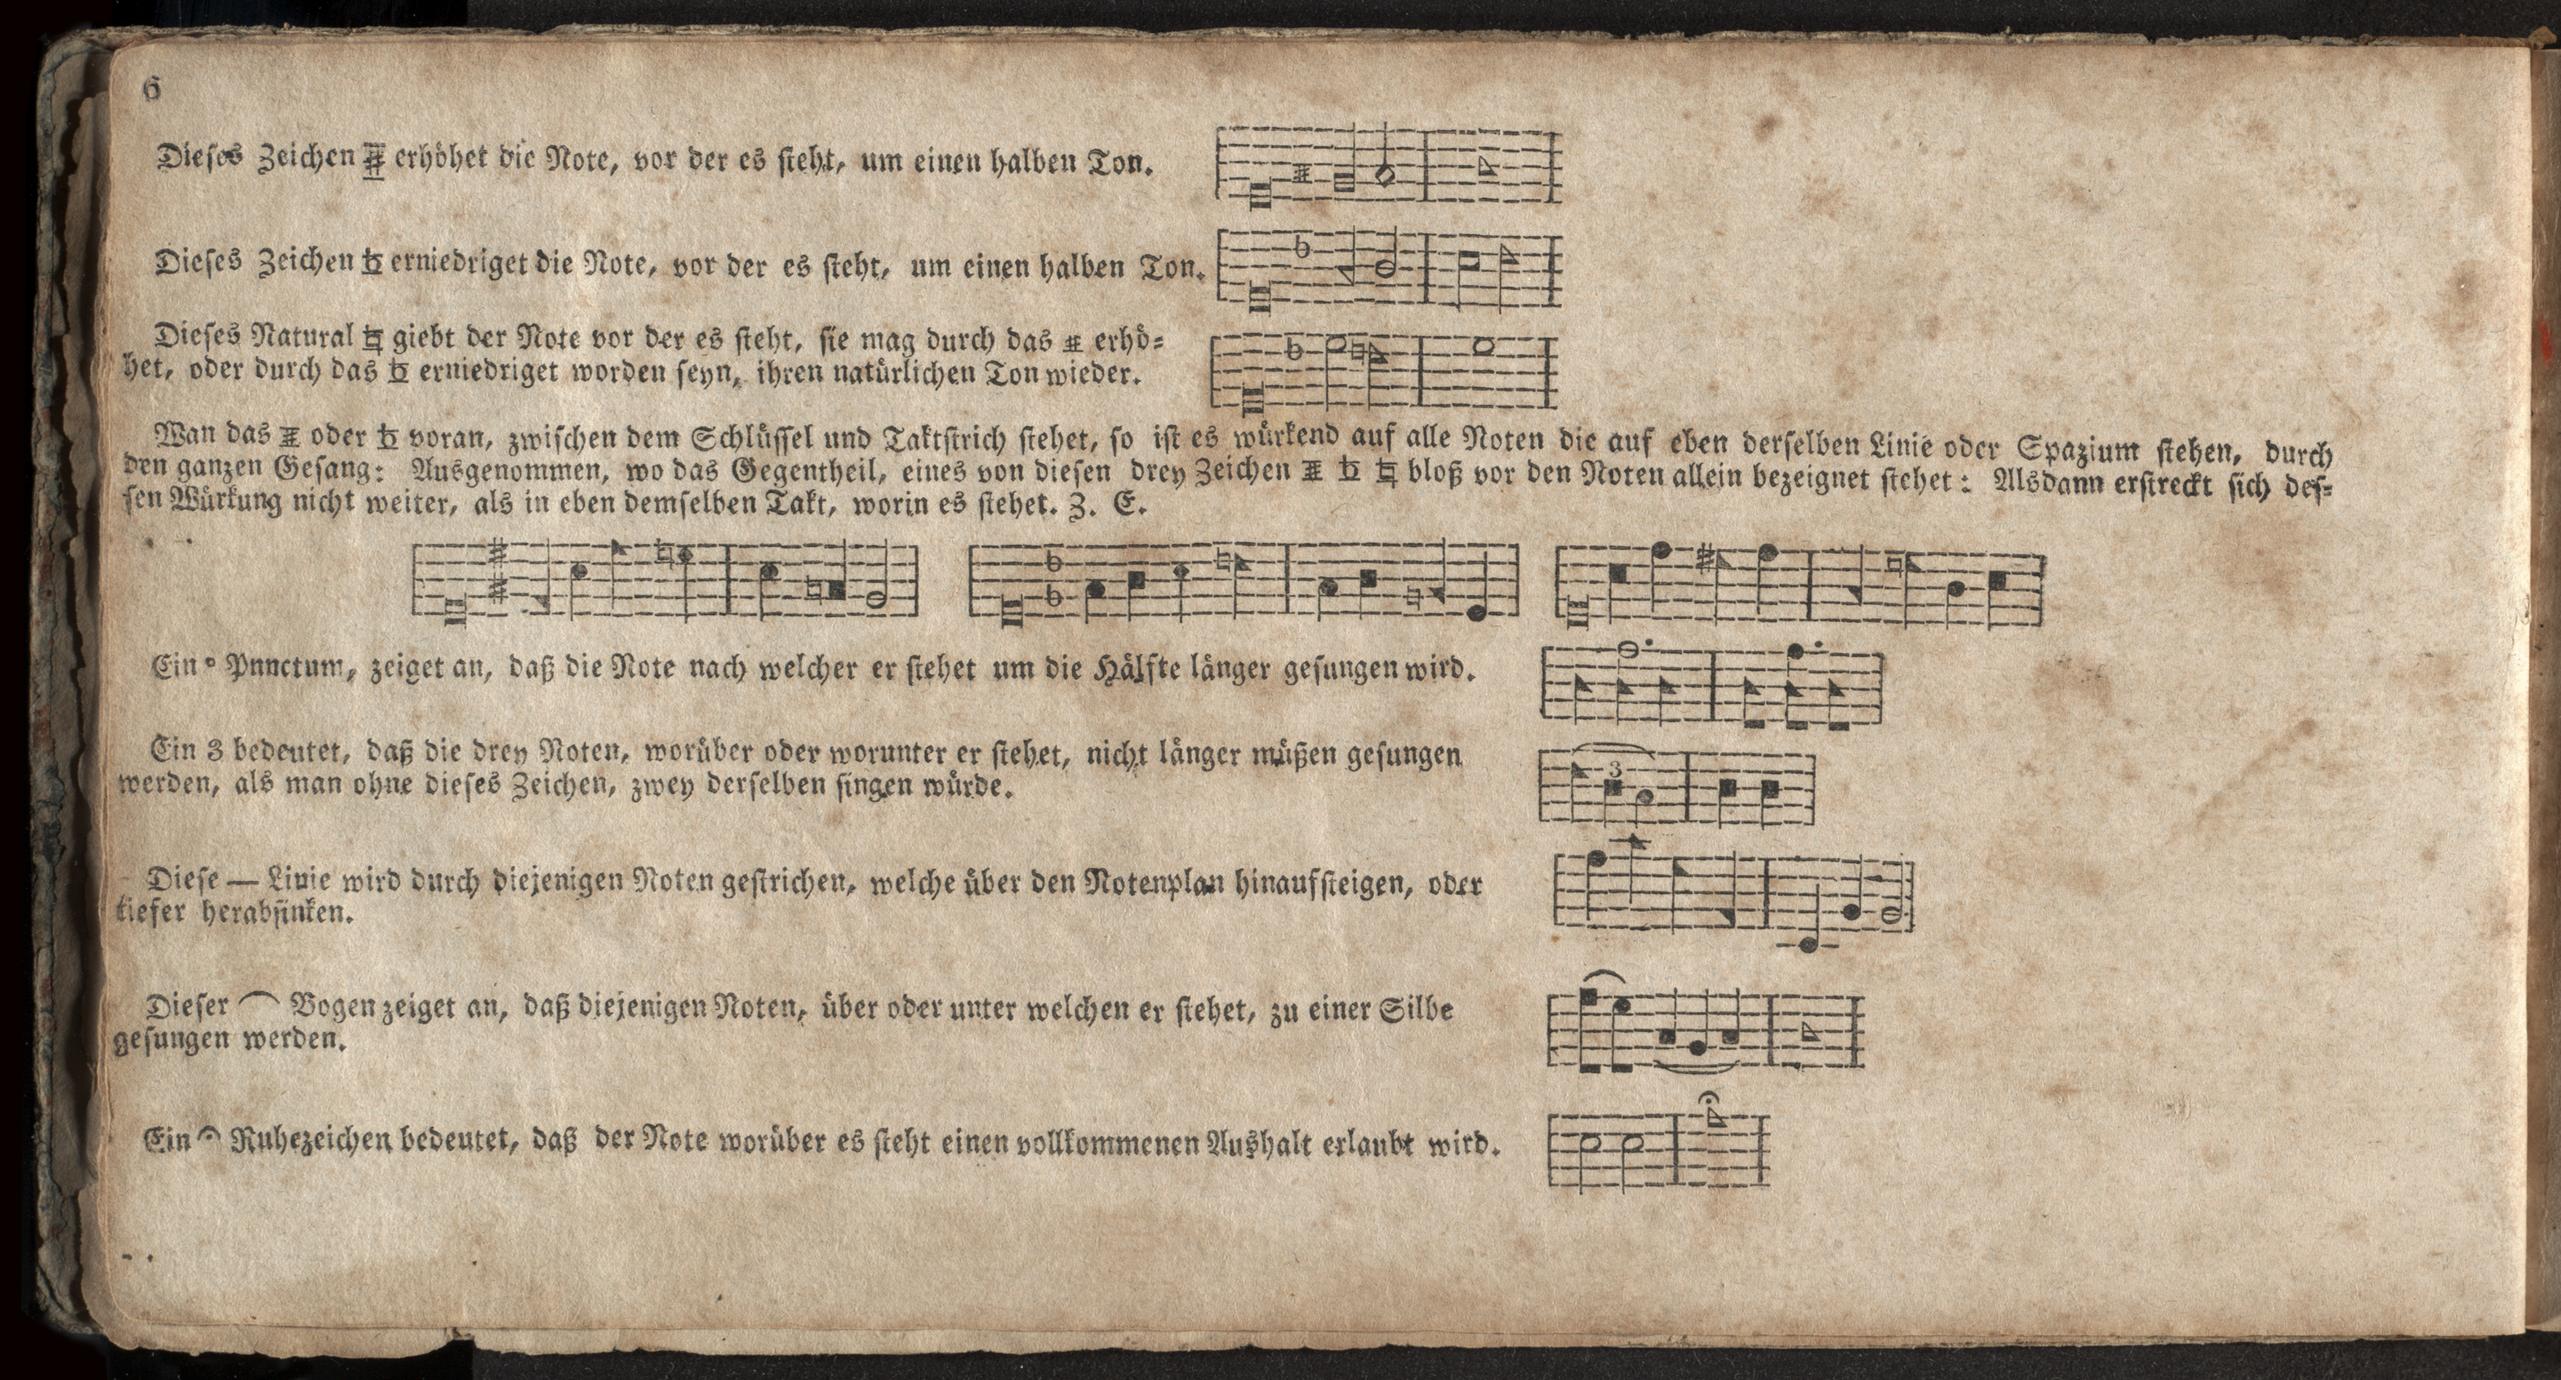 6
Dieses Zeichen ♯ erhöhet die Note, vor der es steht, um einen halben Ton.
Dieses Zeichen ♭ erniedriget die Note, vor der es steht, um einen halben Ton.
Dieses Natural ♮ giebt der Note vor der es steht, sie mag durch das ♯ erhö⸗
het, oder durch das ♭ erniedriget worden seyn, ihren natürlichen Ton wieder.
Wan das ♯ oder ♭ voran, zwischen dem Schlüssel und Taktstrich stehet, so ist es würkend auf alle Noten die auf eben derselben Linie oder Spazium stehen, durch
den ganzen Gesang: Ausgenommen, wo das Gegentheil, eines von diesen drey Zeichen ♯ ♭ ♮ bloß vor den Noten allein bezeignet stehet: Alsdann erstreckt sich des⸗
sen Würkung nicht weiter, als in eben demselben Takt, worin es stehet. Z. E.
Ein • Pnnctum, zeiget an, daß die Note nach welcher er stehet um die Hälfte länger gesungen wird.
Ein 3 bedeutet, daß die drey Noten, worüber oder worunter er stehet, nicht länger müßen gesungen
werden, als man ohne dieses Zeichen, zwey derselben singen würde.
3
Diese — Linie wird durch diejenigen Noten gestrichen, welche über den Notenplan hinaufsteigen, oder
tiefer herabsinken.
Dieser ⁀ Bogen zeiget an, daß diejenigen Noten, über oder unter welchen er stehet, zu einer Silbe
gesungen werden.
Ein 𝄐 Ruhezeichen bedeutet, daß der Note worüber es steht einen vollkommenen Aushalt erlaubt wird.